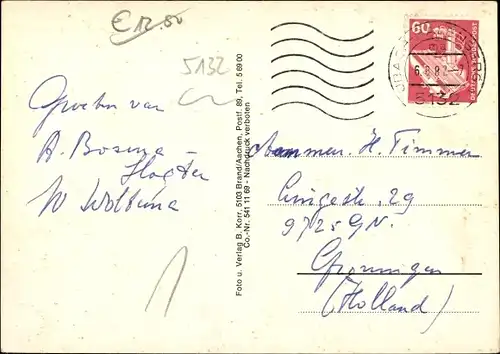 € 12.50
5132
Groeten van
A. Bosma-
Slagter
W Woltema
Foto u. Verlag B. Korr. 5103 Brand/Aachen, Postf. 89, Tel. 5 69 00
Co.-Nr. 541 11 69 - Nachdruck verboten
60
DEUTSCHE BUNDESPOST
5132
H. Timmer
29
9725 GN.
Groningen
(Holland)